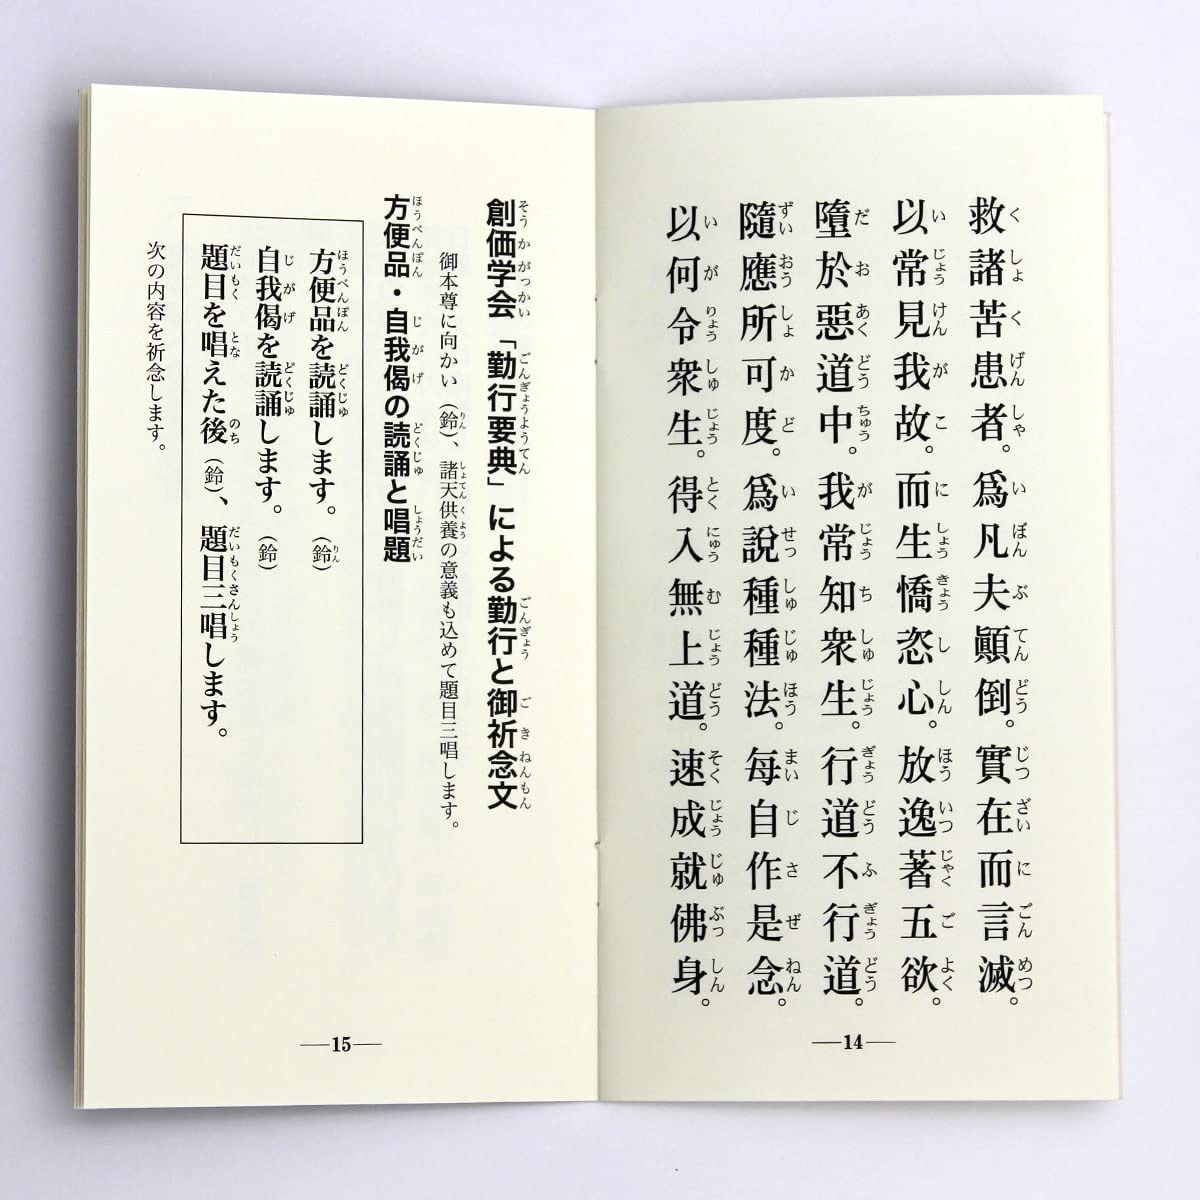 救諸苦患者。爲凡夫顚倒。實在而言滅。
以常見我故。而生憍恣心。放逸著五欲。
墮於惡道中。我常知衆生。行道不行道。
隨應所可度。爲說種種法。每自作是念。
以何令衆生。得入無上道。速成就佛身。
14
創価学会「勤行要典」による勤行と御祈念文
御本尊に向かい（鈴）、諸天供養の意義も込めて題目三唱します。
方便品・自我偈の読誦と唱題
方便品を読誦します。（鈴）
自我偈を読誦します。（鈴）
題目を唱えた後（鈴）、題目三唱します。
次の内容を祈念します。
15